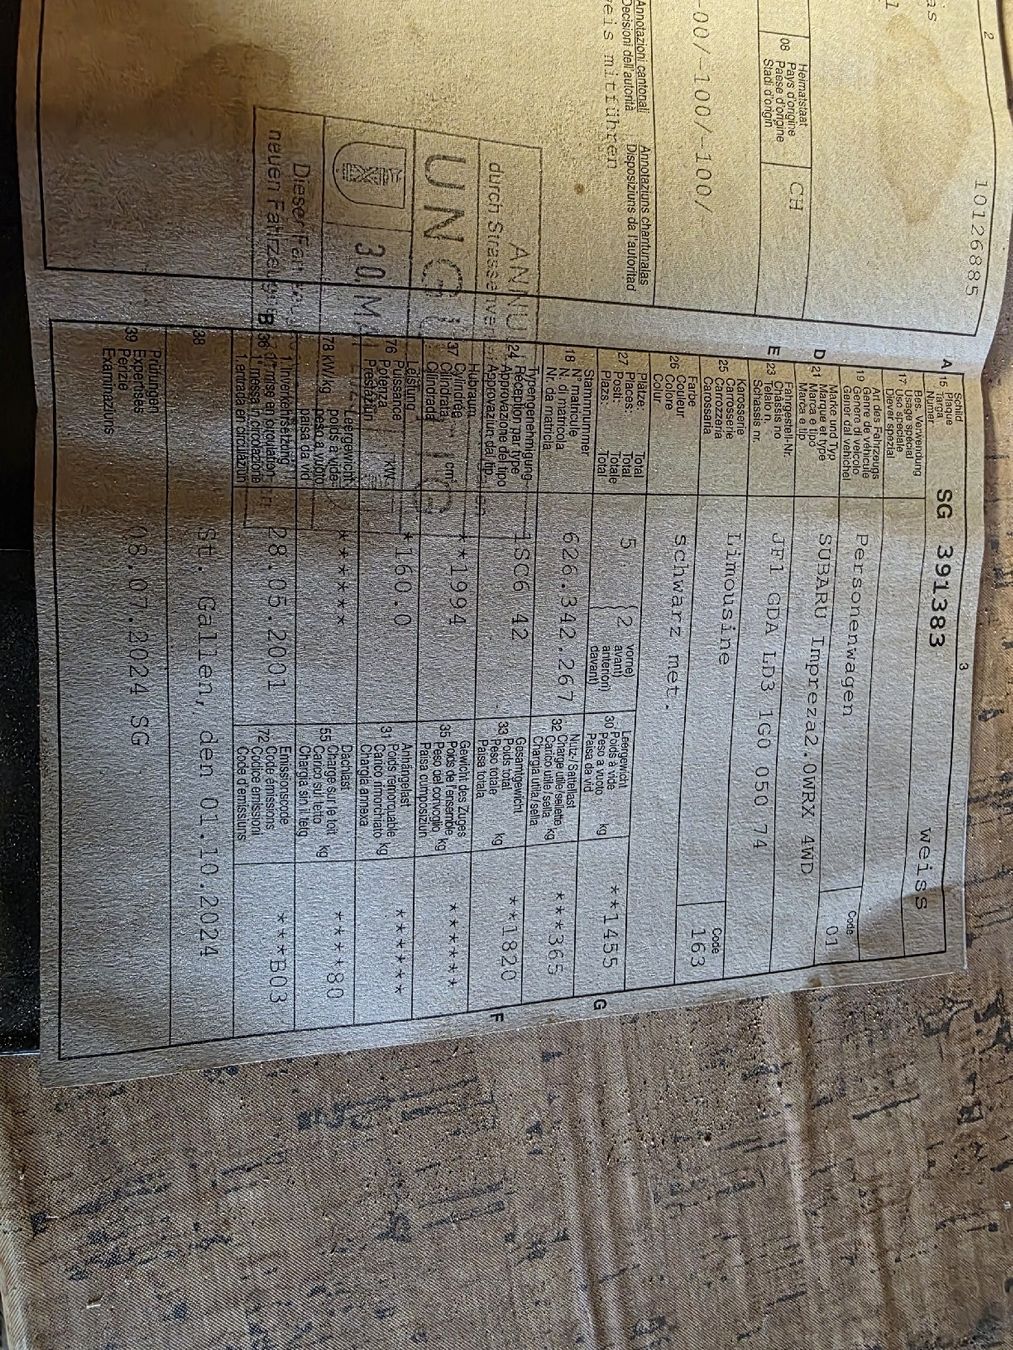 2
10126885
08
Heimatstaat
Pays d'origine
Paese d'origine
Stadi d'origin
CH
-00/-100/-100/-
Annotazioni cantonali
Decisioni dell'autorità
Annotaziuns chantunalas
Disposiziuns da l'autoritad
eis mitführen
ANNU
durch Strassenver
UNG
30. MA
Dieser Fa
neuen Fahrzeug
3
A
15
Schild
Plaque
Targa
Numra
SG 391383
weiss
17
Bes. Verwendung
Usage spécial
Uso speciale
Diever spezial
19
Art des Fahrzeugs
Genre de véhicule
Genere di veicolo
Gener dal vehichel
Personenwagen
Code
01
D
21
Marke und Typ
Marque et type
Marca e tipo
Marca e tip
SUBARU Impreza2.0WRX 4WD
E
23
Fahrgestell-Nr.
Châssis no
Telaio n.
Schassis nr.
JF1 GDA LD3 1G0 050 74
25
Karosserie
Carrosserie
Carrozzeria
Carossaria
Limousine
26
Farbe
Couleur
Colore
Colur
schwarz met.
Code
163
27
Plätze: Total
Places: Total
Posti: Totale
Plazs: Total
5
2
vorne)
avant)
anteriori)
davant)
G
30
Leergewicht
Poids à vide
Peso a vuoto
Paisa da vid
kg
**1455
18
Stammnummer
N° matricule
N. di matricola
Nr. da matricla
626.342.267
32
Nutz-/Sattellast
Charge utile/sellette
Carico utile / sella
Chargia utila/sella
kg
***365
24
Typengenehmigung
Réception par type
Approvazione del tipo
Approvaziun dal tip
1SC6 42
F
33
Gesamtgewicht
Poids total
Peso totale
Paisa totala
kg
**1820
37
Hubraum
Cylindrée
Cilindrata
Cilindrada
cm³
**1994
35
Gewicht des Zuges
Poids de l'ensemble
Peso del convoglio
Paisa cumposiziun
kg
******
76
Leistung
Puissance
Potenza
Prestaziun
kW
*160.0
31
Anhängelast
Poids remorquable
Carico rimorchiato
Chargia annexa
kg
******
78
kW/kg
Leergewicht
poids à vide
peso a vuoto
paisa da vid
*****
55
Dachlast
Charge sur le toit
Carico sul tetto
Chargia sin il tetg
kg
****80
B
36
1. Inverkehrsetzung
1re mise en circulation
1. messa in circolazione
1. entrada en circulaziun
28.05.2001
72
Emissionscode
Code émissions
Codice emissioni
Code d'emissiuns
***B03
38
St. Gallen, den 01.10.2024
39
Prüfungen
Expertises
Perizie
Examinaziuns
08.07.2024 SG